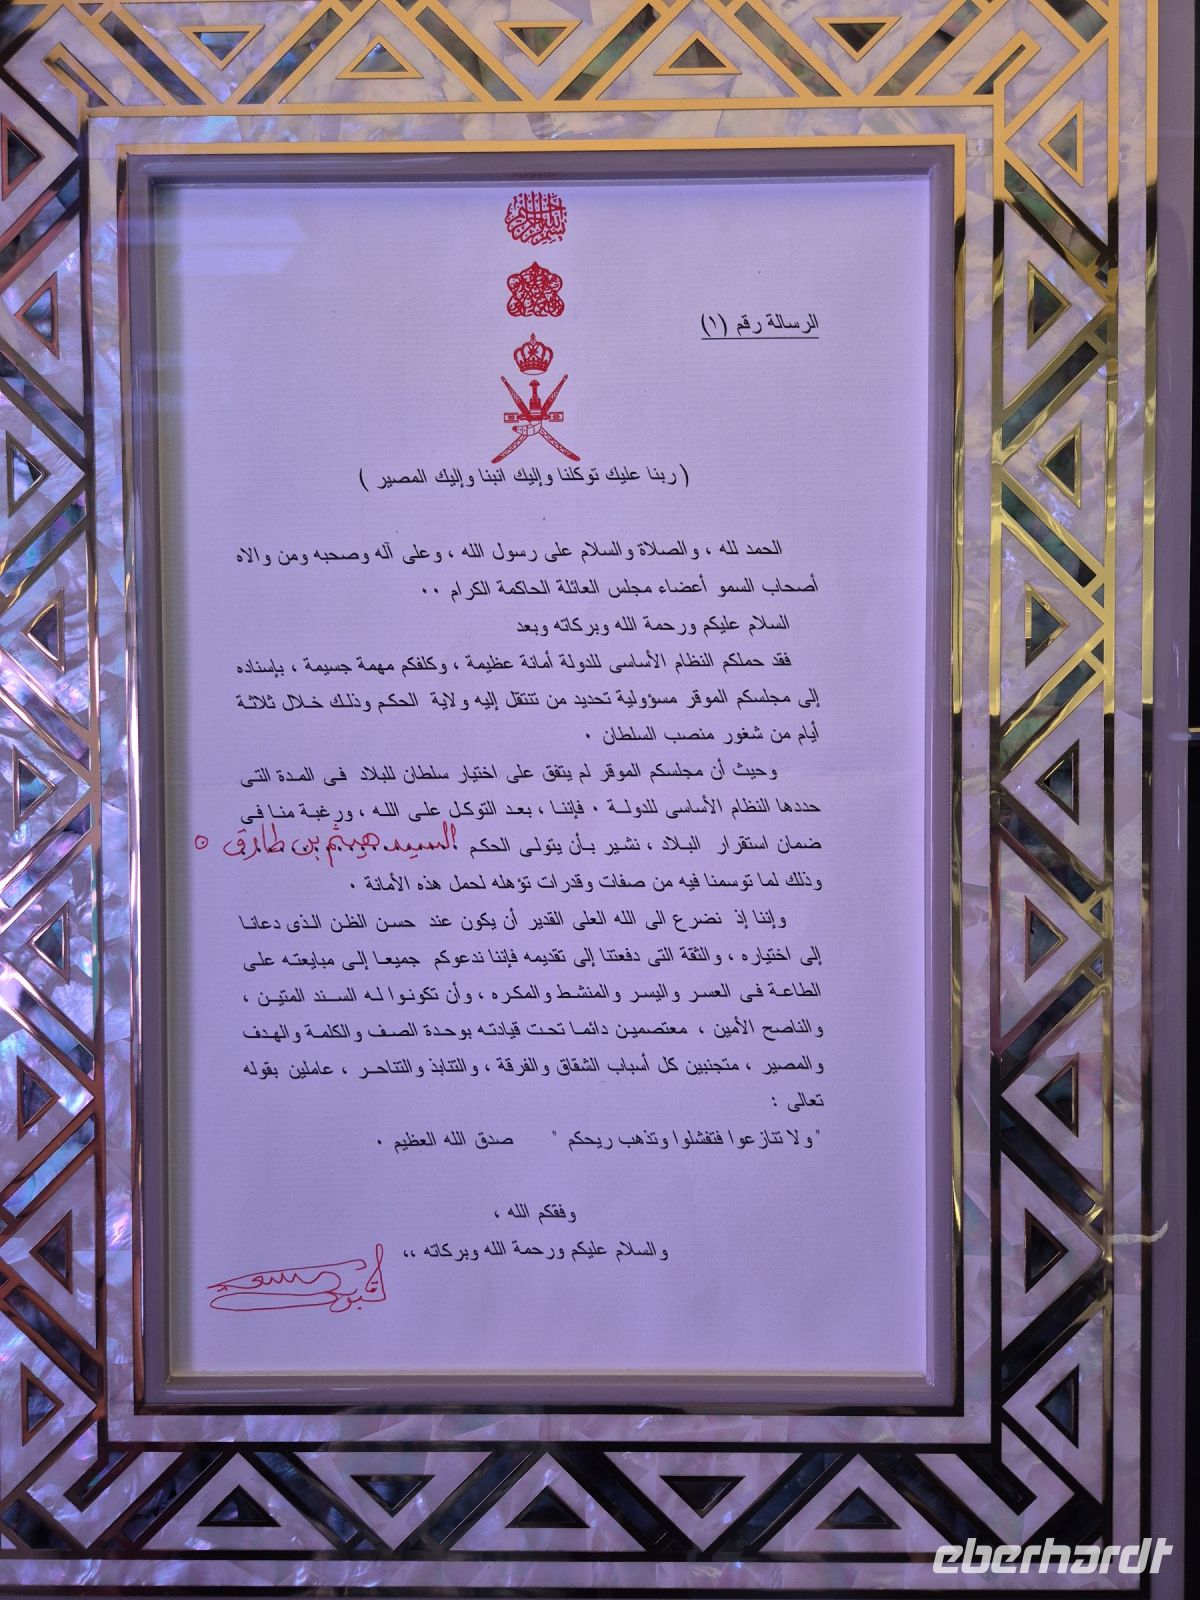 الرسالة رقم (١)
( ربنا عليك توكلنا وإليك انبنا وإليك المصير )
الحمد لله ، والصلاة والسلام على رسول الله ، وعلى آله وصحبه ومن والاه
أصحاب السمو أعضاء مجلس العائلة الحاكمة الكرام ٠٠
السلام عليكم ورحمة الله وبركاته وبعد
فقد حملكم النظام الأساسى للدولة أمانة عظيمة ، وكلفكم مهمة جسيمة ، بإسناده
إلى مجلسكم الموقر مسؤولية تحديد من تنتقل إليه ولاية الحكم وذلك خلال ثلاثة
أيام من شغور منصب السلطان ٠
وحيث أن مجلسكم الموقر لم يتفق على اختيار سلطان للبلاد فى المدة التى
حددها النظام الأساسى للدولة ٠ فإننا ، بعد التوكل على الله ، ورغبة منا فى
ضمان استقرار البلاد ، نشير بأن يتولى الحكم السيد هيثم بن طارق ٥
وذلك لما توسمنا فيه من صفات وقدرات تؤهله لحمل هذه الأمانة ٠
وإننا إذ نضرع الى الله العلى القدير أن يكون عند حسن الظن الذى دعانا
إلى اختياره ، والثقة التى دفعتنا إلى تقديمه فإننا ندعوكم جميعا إلى مبايعته على
الطاعة فى العسر واليسر والمنشط والمكره ، وأن تكونوا له السند المتين ،
والناصح الأمين ، معتصمين دائما تحت قيادته بوحدة الصف والكلمة والهدف
والمصير ، متجنبين كل أسباب الشقاق والفرقة ، والتنابذ والتناحر ، عاملين بقوله
تعالى :
"ولا تنازعوا فتفشلوا وتذهب ريحكم " صدق الله العظيم ٠
وفقكم الله ،
والسلام عليكم ورحمة الله وبركاته ،،
قابوس بن سعيد
eberhardt